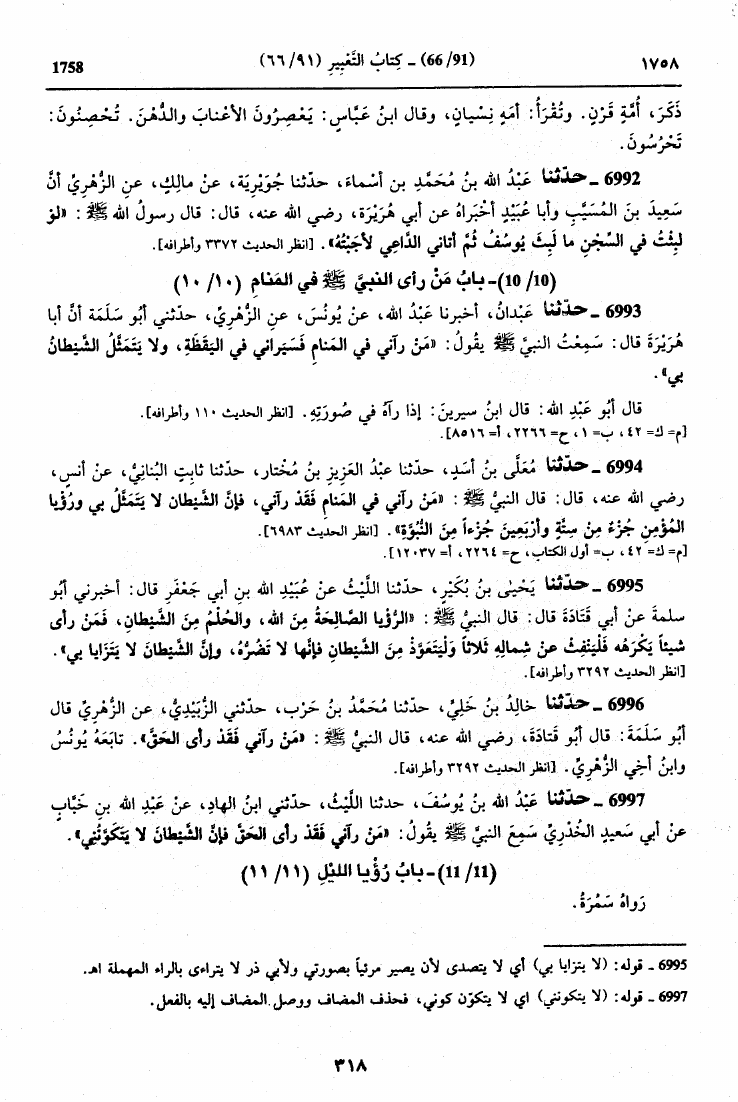 ١٧٥٨ (66/91) ـ كِتابُ التَّعْبِيرِ (٦٦/٩١) 1758
ذَكَرَ، أُمَّةٍ قَرْنٍ. وتُقْرَأُ: أمَهٍ نِسْيانٍ، وقال ابنُ عَبَّاسٍ: يَعْصِرُونَ الأعْنابَ والدُّهْنَ. تُحْصِنُونَ:
تَحْرُسُونَ.
6992 ـ حدّثنا عَبْدُ الله بنُ مُحَمَّدِ بن أسْماءَ، حدّثنا جُوَيْرِيَة، عنْ مالِكٍ، عنِ الزُّهْرِيِّ أنَّ
سَعِيدَ بنَ المُسَيَّبِ وأبا عُبَيْدٍ أخْبَراهُ عن أبي هُرَيْرَة، رضي الله عنه، قال: قال رسولُ الله ﷺ: «لوْ
لبِثْتُ في السِّجْنِ ما لَبِثَ يُوسُفُ ثُمَّ أتاني الدَّاعِي لأجَبْتُهُ». [انظر الحديث ٣٣٧٢ وأطرافه].
(10/10)ـ بابُ مَنْ رأى النبيَّ ﷺ في المَنامِ (١٠/١٠)
6993 ـ حدّثنا عَبْدانُ، أخبرنا عَبْدُ الله، عنْ يُونُسَ، عنِ الزُّهْرِيِّ، حدّثني أبُو سَلَمَةَ أنَّ أبا
هُرَيْرَةَ قال: سَمِعْتُ النبيَّ ﷺ يقُولُ: «مَنْ رآني في المَنامِ فَسَيَراني في اليَقَظَةِ، ولا يَتَمَثَّلُ الشَّيْطانُ
بي».
قال أبُو عَبْدِ الله: قال ابنُ سيرينَ: إذا رآهُ في صُورَتِهِ. [انظر الحديث ١١٠ وأطرافه].
[م= ك= ٤٢، ب= ١، ح= ٢٢٦٦، أ= ٨٥١٦].
6994 ـ حدّثنا مُعَلَّى بنُ أسَدٍ، حدّثنا عبْدُ العَزِيزِ بنُ مُخْتار، حدّثنا ثابِتٍ البُنانِيُّ، عنْ أنسٍ،
رضي الله عنه، قال: قال النبيُّ ﷺ: «مَنْ رآني في المَنامِ فَقَدْ رآني، فإنَّ الشَّيْطان لا يَتَمَثَّلُ بي ورُؤْيا
المُؤْمِنِ جُزْءٌ مِنْ سِتَّةٍ وأرْبَعِينَ جُزْءاً مِنَ النُّبُوَّةِ». [انظر الحديث ٦٩٨٣].
[م= ك= ٤٢، ب= أول الكتاب، ح= ٢٢٦٤، أ= ١٢٠٣٧].
6995 ـ حدّثنا يَحْيىٰ بنُ بُكَيْرٍ، حدّثنا اللَّيْثُ عنْ عُبَيْدِ الله بنِ أبي جَعْفَرٍ قال: أخبرني أبُو
سلمةَ عنْ أبي قَتَادَةَ قال: قال النبيُّ ﷺ: «الرُّؤْيا الصَّالِحَةُ مِنَ الله، والحُلْمُ مِنَ الشَّيْطانِ، فَمَنْ رأى
شَيئاً يَكْرَهُه فَلْيَنْفِثْ عنْ شِمالِهِ ثَلاثاً وَلْيَتَعَوَّذْ مِنَ الشَّيْطانِ فإنَّها لا تَضُرُّهُ، وإنَّ الشَّيْطانَ لا يَتَزايا بي».
[انظر الحديث ٣٢٩٢ وأطرافه].
6996 ـ حدّثنا خالِدُ بنُ خَلِيٍّ، حدّثنا مُحَمَّدُ بنُ حَرْب، حدّثني الزُّبَيْدِيُّ، عن الزُّهْرِيِّ قال
أبُو سَلَمَةَ: قال أبُو قَتادَةَ، رضي الله عنه، قال النبيُّ ﷺ: «مَنْ رآني فَقَدْ رأى الحَقَّ». تابَعَهُ يُونُسُ
وابنُ أخِي الزُّهْرِيِّ. [انظر الحديث ٣٢٩٢ وأطرافه].
6997 ـ حدّثنا عَبْدُ الله بنُ يُوسُفَ، حدثنا اللَّيْثُ، حدّثني ابنُ الهادِ، عنْ عَبْدِ الله بنِ خَبَّابٍ
عنْ أبي سَعيدٍ الخُدْرِيِّ سَمِعَ النبيَّ ﷺ يقُولُ: «مَنْ رآني فَقَدْ رأى الحَقَّ فإنَّ الشَّيْطانَ لا يَتَكَوَّنُني».
(11/11)ـ بابُ رُؤْيا الليْلِ (١١/١١)
رَواهُ سَمُرَةُ.
6995 ـ قوله: (لا يتزايا بي) أي لا يتصدى لأن يصير مرئياً بصورتي ولأبي ذر لا يتراءى بالراء المهملة اهـ.
6997 ـ قوله: (لا يتكونني) اي لا يتكوّن كوني، فحذف المضاف ووصل المضاف إليه بالفعل.
٣١٨